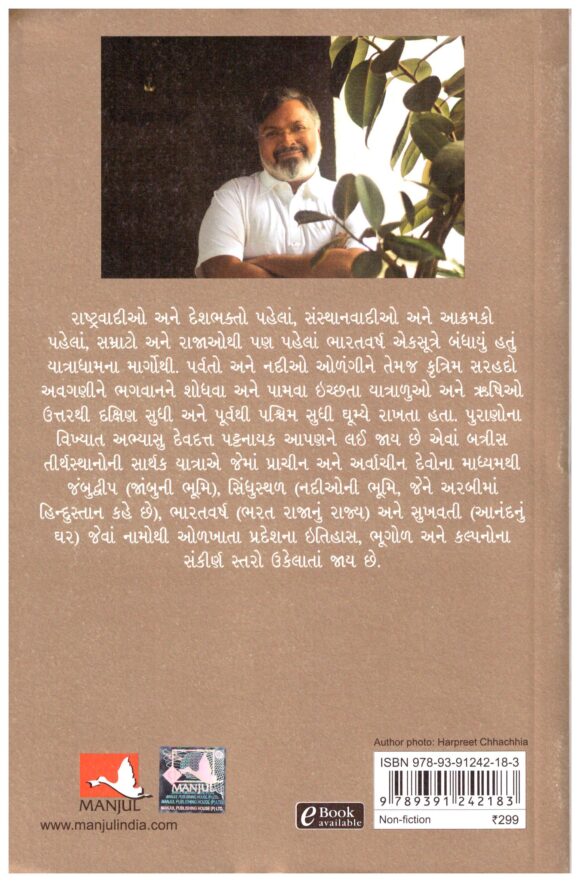 રાષ્ટ્રવાદીઓ અને દેશભક્તો પહેલાં, સંસ્થાનવાદીઓ અને આક્રમકો
પહેલાં, સમ્રાટો અને રાજાઓથી પણ પહેલાં ભારતવર્ષ એકસૂત્રે બંધાયું હતું
યાત્રાધામના માર્ગોથી. પર્વતો અને નદીઓ ઓળંગીને તેમજ કુત્રિમ સરહદો
અવગણીને ભગવાનને શોધવા અને પામવા ઇચ્છતા યાત્રાળુઓ અને ઋષિઓ
ઉત્તરથી દક્ષિણ સુધી અને પૂર્વથી પશ્ચિમ સુધી ઘૂમ્યે રાખતા હતા. પુરાણોના
વિખ્યાત અભ્યાસુ દેવદત્ત પટ્ટનાયક આપણને લઈ જાય છે એવાં બત્રીસ
તીર્થસ્થાનોની સાર્થક યાત્રાએ જેમાં પ્રાચીન અને અર્વાચીન દેવોના માધ્યમથી
જંબુદ્વીપ (જાંબુની ભૂમિ), સિંધુસ્થળ (નદીઓની ભૂમિ, જેને અરબીમાં
હિન્દુસ્તાન કહે છે), ભારતવર્ષ (ભરત રાજાનું રાજ્ય) અને સુખવતી (આનંદનું
ઘર) જેવાં નામોથી ઓળખાતા પ્રદેશના ઇતિહાસ, ભૂગોળ અને કલ્પનોના
સંકીર્ણ સ્તરો ઉકેલાતાં જાય છે.
Author photo: Harpreet Chhachhia
ISBN 978-93-91242-18-3
9 789391 242183
Non-fiction ₹299
eBook
available
MANJUL
www.manjulindia.com
MANJUL
MANJUL PUBLISHING HOUSE (P) LTD.